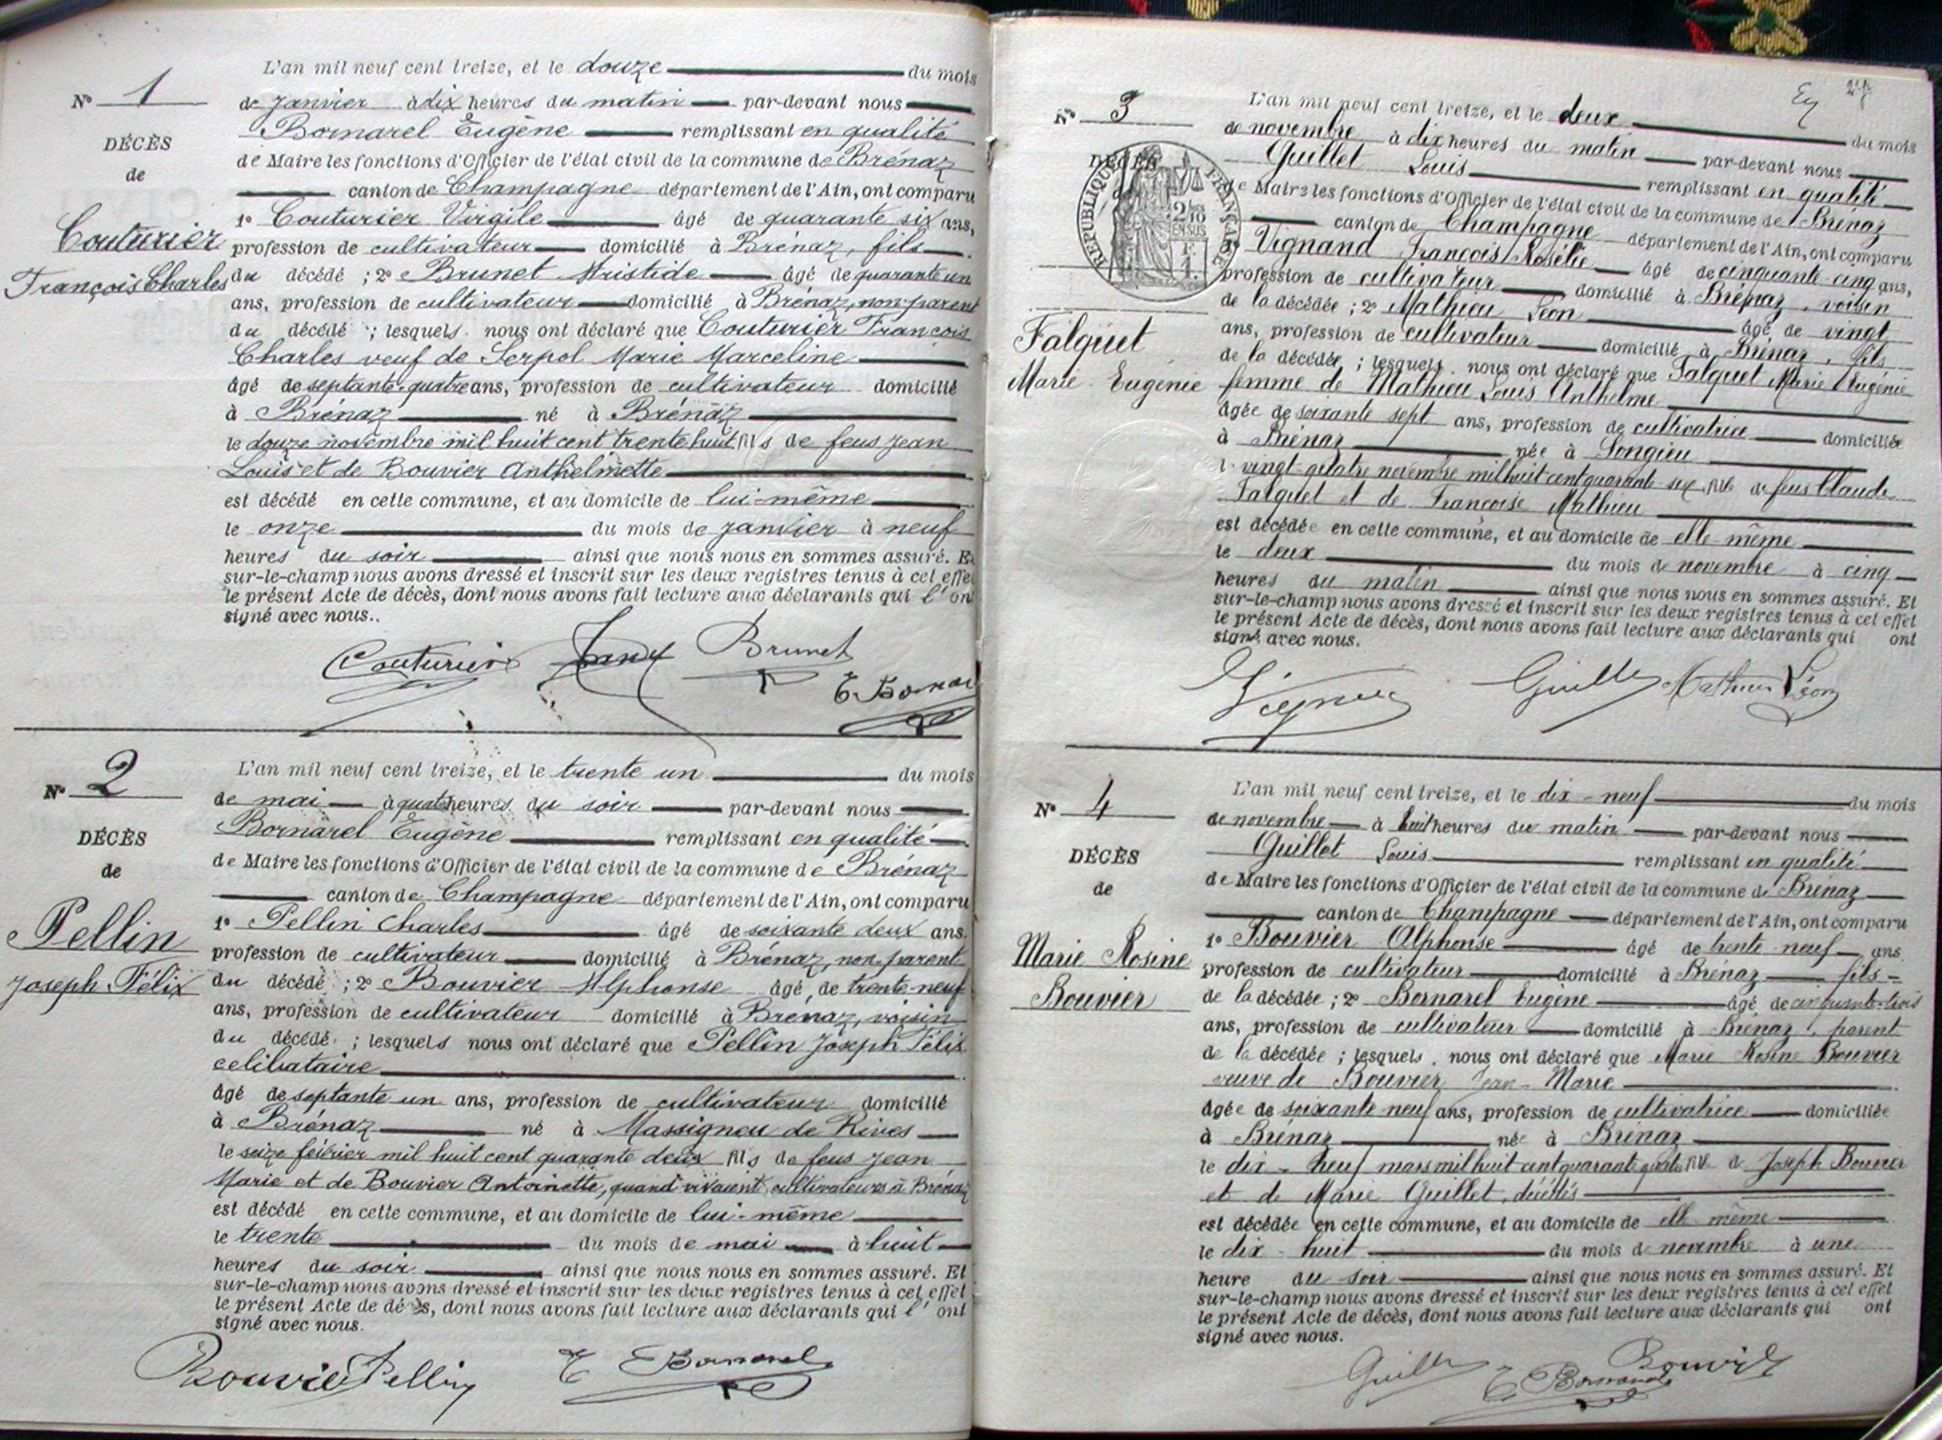 L'an mil neuf cent treize, et le douze du mois
N° 1
de janvier à dix heures du matin par-devant nous
Bornarel Eugène remplissant en qualité
DÉCÈS
de
de Maire les fonctions d'Officier de l'état civil de la commune de Brénaz
canton de Champagne département de l'Ain, ont comparu
1° Couturier Virgile âgé de quarante six ans,
Couturier
François Charles
profession de cultivateur domicilié à Brénaz, fils
du décédé ; 2° Brunet Aristide âgé de quarante un
ans, profession de cultivateur domicilié à Brénaz, non parent
du décédé ; lesquels nous ont déclaré que Couturier François
Charles veuf de Serpol Marie Marceline
âgé de septante-quatre ans, profession de cultivateur domicilié
à Brénaz né à Brénaz
le douze novembre mil huit cent trente huit fils de feus Jean
Louis et de Bouvier Anthelmette
est décédé en cette commune, et au domicile de lui-même
le onze du mois de janvier à neuf
heures du soir ainsi que nous nous en sommes assuré. Et
sur-le-champ nous avons dressé et inscrit sur les deux registres tenus à cet effet
le présent Acte de décès, dont nous avons fait lecture aux déclarants qui l'ont
signé avec nous.
Couturier Brunet
E. Bornarel
L'an mil neuf cent treize, et le trente un du mois
N° 2
de mai à quatre heures du soir par-devant nous
Bornarel Eugène remplissant en qualité
DÉCÈS
de
de Maire les fonctions d'Officier de l'état civil de la commune de Brénaz
canton de Champagne département de l'Ain, ont comparu
1° Pellin Charles âgé de soixante deux ans
Pellin
Joseph Félix
profession de cultivateur domicilié à Brénaz, non parent
du décédé ; 2° Bouvier Alphonse âgé de trente-neuf
ans, profession de cultivateur domicilié à Brénaz, voisin
du décédé ; lesquels nous ont déclaré que Pellin Joseph Félix
celibataire
âgé de septante un ans, profession de cultivateur domicilié
à Brénaz né à Massigneu de Rives
le seize février mil huit cent quarante deux fils de feus Jean
Marie et de Bouvier Antoinette, quand vivaient cultivateurs à Brénaz
est décédé en cette commune, et au domicile de lui-même
le trente du mois de mai à huit
heures du soir ainsi que nous nous en sommes assuré. Et
sur-le-champ nous avons dressé et inscrit sur les deux registres tenus à cet effet
le présent Acte de décès, dont nous avons fait lecture aux déclarants qui l'ont
signé avec nous.
Bouvier Pellin E Bornarel
27
L'an mil neuf cent treize, et le deux du mois
N° 3
de novembre à dix heures du matin par-devant nous
Guillet Louis remplissant en qualité
DÉCÈS
RÉPUBLIQUE FRANÇAISE
de Maire les fonctions d'Officier de l'état civil de la commune de Brénaz
canton de Champagne département de l'Ain, ont comparu
Vignand François Rosélie âgé de cinquante cinq ans,
profession de cultivateur domicilié à Brénaz, voisin
de la décédée ; 2° Mathieu Léon âgé de vingt
Falquet
Marie Eugénie
ans, profession de cultivateur domicilié à Brénaz, fils
de la décédée ; lesquels nous ont déclaré que Falquet Marie Eugénie
femme de Mathieu Louis Anthelme
âgée de soixante sept ans, profession de cultivatrice domiciliée
à Brénaz née à Songieu
le vingt-quatre novembre mil huit cent quarante six fille de feus Claude
Falquet et de Françoise Mathieu
est décédée en cette commune, et au domicile de elle-même
le deux du mois de novembre à cinq
heures du matin ainsi que nous nous en sommes assuré. Et
sur-le-champ nous avons dressé et inscrit sur les deux registres tenus à cet effet
le présent Acte de décès, dont nous avons fait lecture aux déclarants qui ont
signé avec nous.
Guillet Mathieu Léon
L'an mil neuf cent treize, et le dix-neuf du mois
N° 4
de novembre à huit heures du matin par-devant nous
Guillet Louis remplissant en qualité
DÉCÈS
de
de Maire les fonctions d'Officier de l'état civil de la commune de Brénaz
canton de Champagne département de l'Ain, ont comparu
1° Bouvier Alphonse âgé de trente neuf ans
Marie Rosine
Bouvier
profession de cultivateur domicilié à Brénaz fils
de la décédée ; 2° Bornarel Eugène âgé de cinquante-trois
ans, profession de cultivateur domicilié à Brénaz, parent
de la décédée ; lesquels nous ont déclaré que Marie Rosine Bouvier
veuve de Bouvier Jean-Marie
âgée de soixante neuf ans, profession de cultivatrice domiciliée
à Brénaz née à Brénaz
le dix-neuf mars mil huit cent quarante quatre fille de Joseph Bouvier
et de Marie Guillet, décédés
est décédée en cette commune, et au domicile de elle même
le dix-huit du mois de novembre à une
heure du soir ainsi que nous nous en sommes assuré. Et
sur-le-champ nous avons dressé et inscrit sur les deux registres tenus à cet effet
le présent Acte de décès, dont nous avons fait lecture aux déclarants qui ont
signé avec nous.
Guillet E Bornarel Bouvier